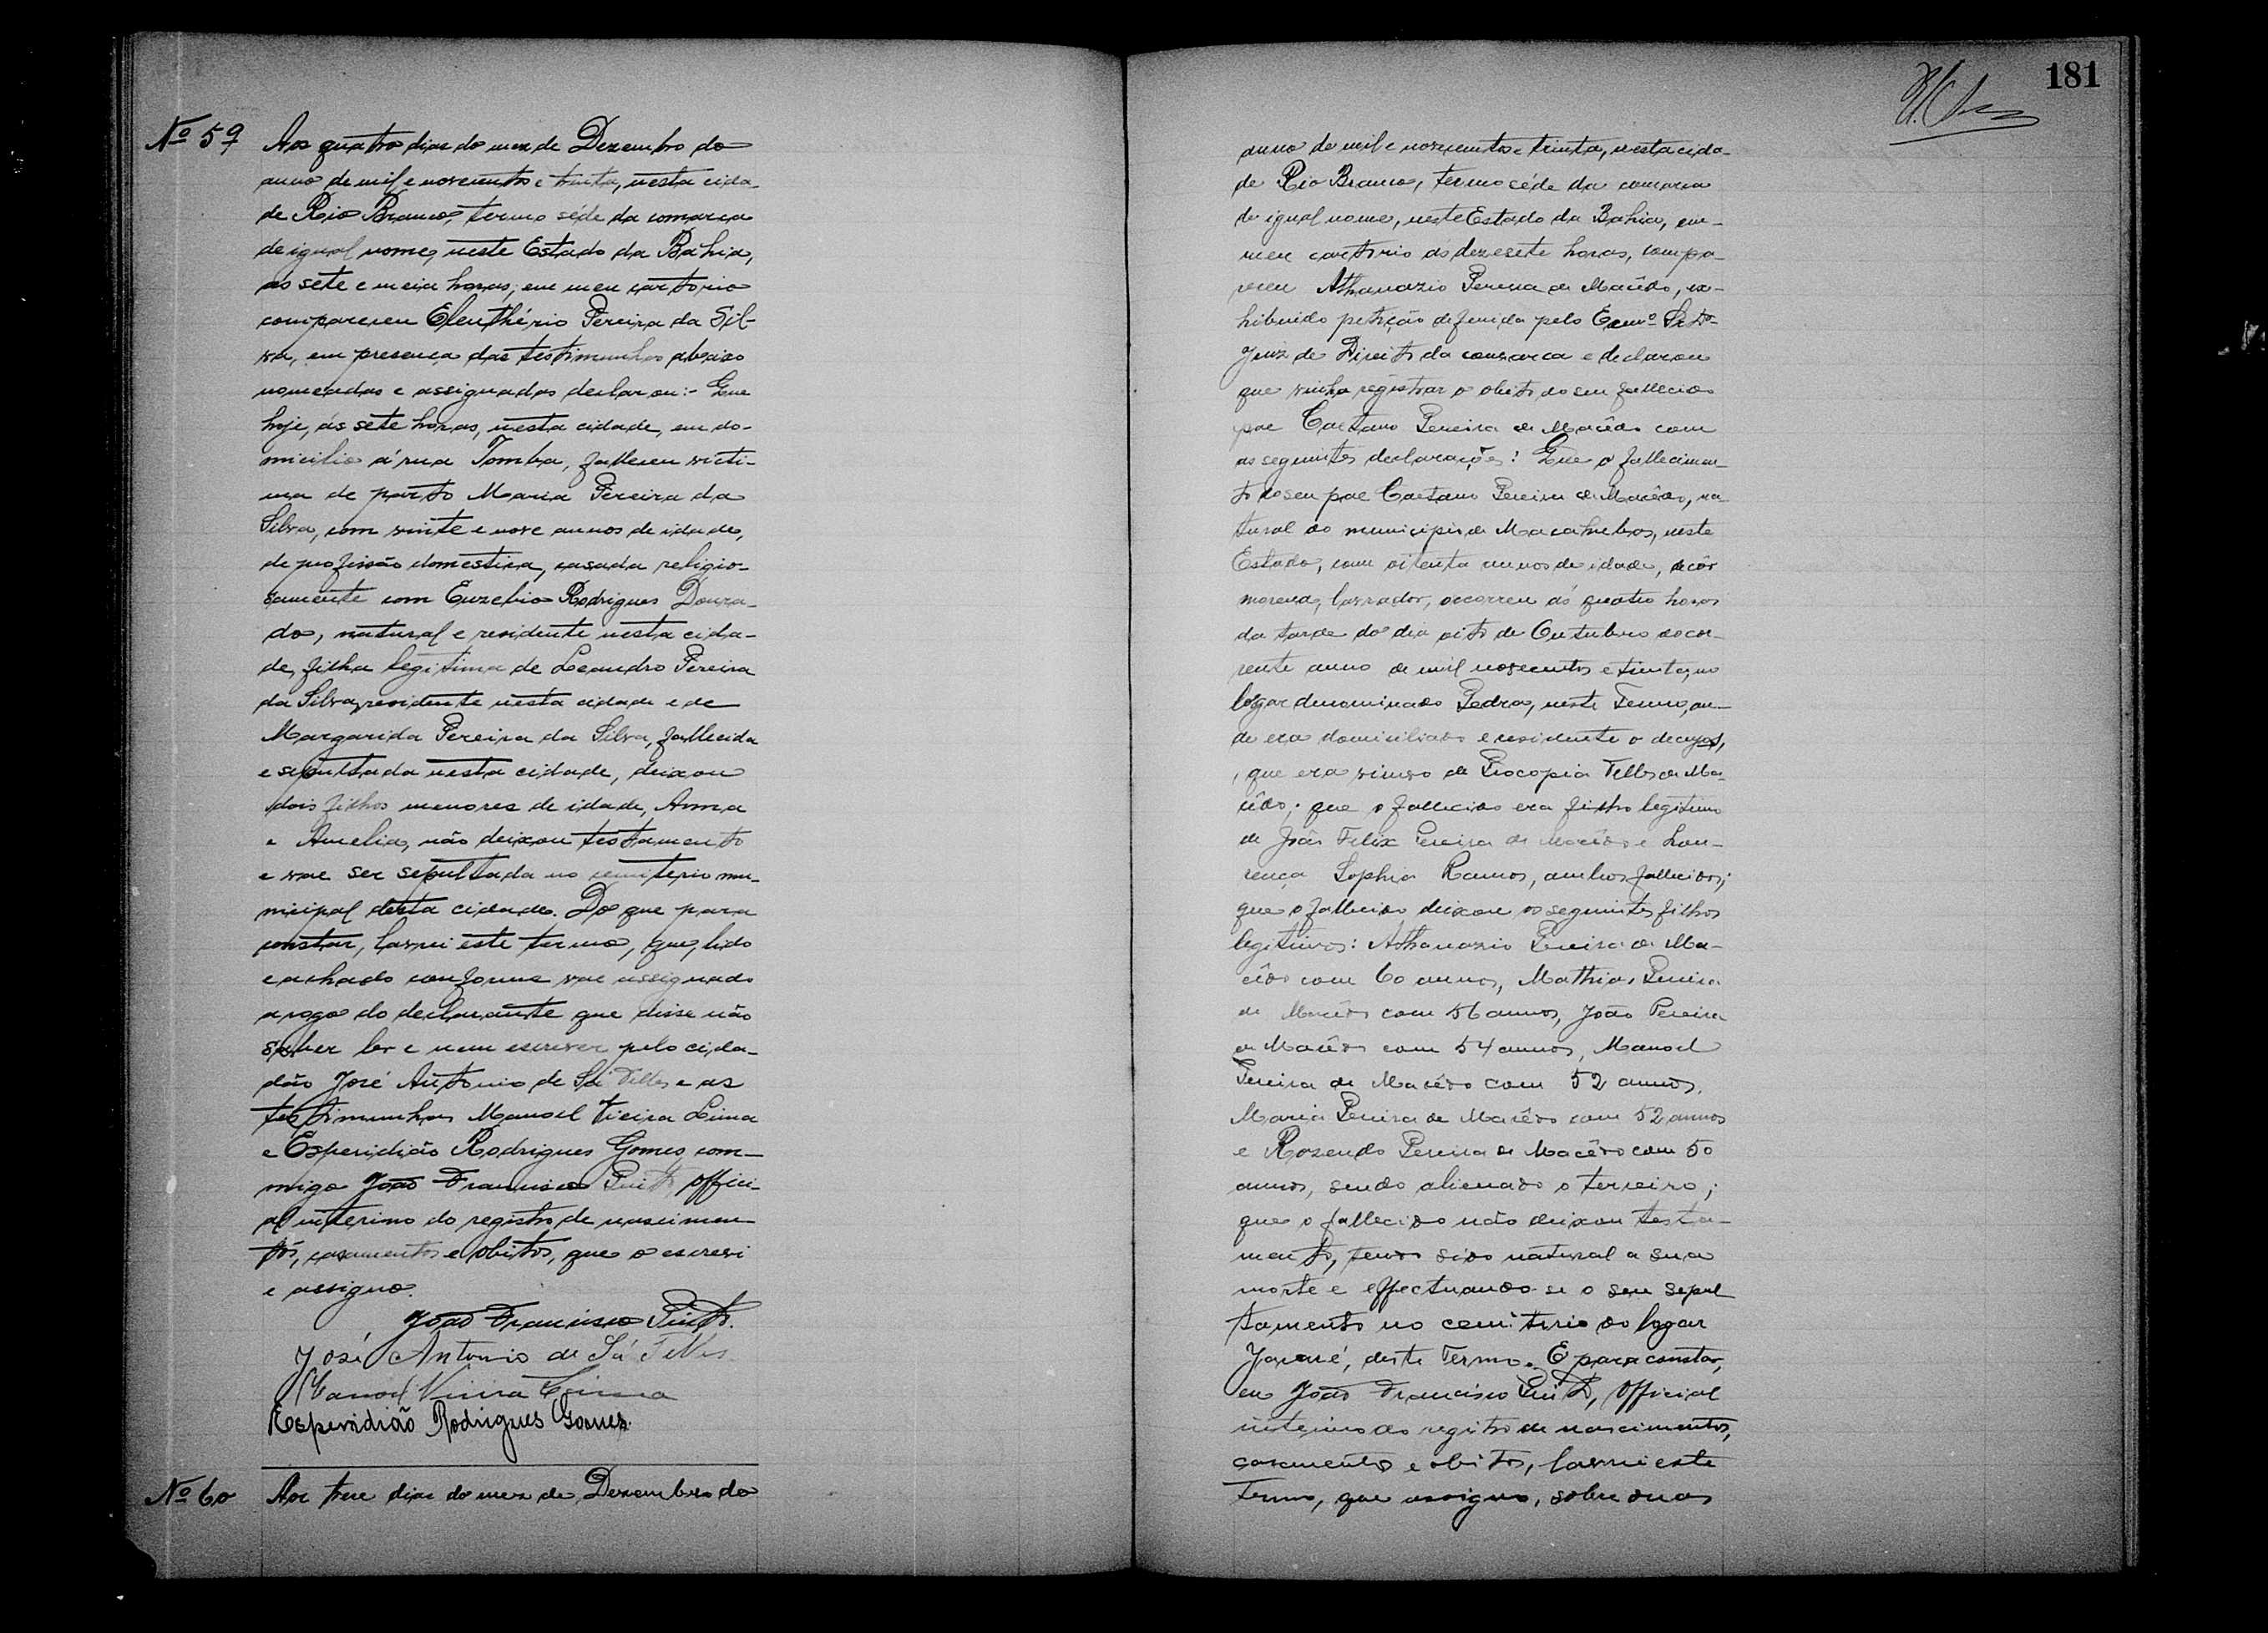 Nº 59
Aos quatro dias do mez de Dezembro do
anno de mil e novecentos e trinta, nesta cida-
de Rio Branco, termo séde da comarca
de igual nome, neste Estado da Bahia,
as sete e meia horas, em meu cartorio
compareceu Eleuthério Pereira da Sil-
va, em presença das testimunhas abaixo
nomeadas e assignadas declarou:- Que
hoje, ás sete horas, nesta cidade, em do-
micilio á rua Tomba, falleceu victi-
ma de parto Maria Pereira da
Silva, com vinte e nove annos de idade,
de profissão domestica, casada religio-
samente com Euzebio Rodrigues Doura-
do, natural e residente nesta cida-
de, filha legitima de Leandro Pereira
da Silva, residente nesta cidade e de
Margarida Pereira da Silva, fallecida
e sepultada nesta cidade, deixou
dois filhos menores de idade, Anna
e Amelia, não deixou testamento
e vae ser sepultada no cemiterio mu-
nicipal desta cidade. Do que para
constar, lavrei este termo, que, lido
e achado conforme vae assignado
a rogo do declarante que disse não
saber ler e nem escrever pelo cida-
dão José Antonio de Sá Telles e as
testimunhas Manoel Vieira Lima
e Esperidião Rodrigues Gomes, com-
migo João Francisco Pinto, offici-
al interino do registro de nascimen-
tos, casamentos e obitos, que o escrevi
e assigno.
João Francisco Pinto.
José Antonio de Sá Telles
Manoel Vieira Lima
Esperidião Rodrigues Gomes
Nº 60
Aos treze dias do mez de Dezembro do
181
anno de mil e novecentos e trinta, nesta cida-
de Rio Branco, termo séde da comarca
de igual nome, neste Estado da Bahia, em
meu cartorio ás dezesete horas, compa-
receu Athanazio Pereira de Macêdo, ex-
hibindo petição deferida pelo Exmº Sr. Dr.
Juiz de Direito da comarca e declarou
que vinha registrar o obito do seu fallecido
pae Caetano Pereira de Macêdo com
as seguintes declarações: Que o fallecimen-
to do seu pae Caetano Pereira de Macêdo, na-
tural do municipio de Macahubas, neste
Estado, com oitenta annos de idade, de côr
morena, lavrador, occorreu ás quatro horas
da tarde do dia oito de Outubro do cor-
rente anno de mil novecentos e trinta, no
logar denominado Pedra, neste Termo, on-
de era domiciliado e residente o decujos,
, que era viuvo de Procopia Telles de Ma-
cêdo; que o fallecido era filho legitimo
de João Felix Pereira de Macêdo e Lou-
rença Sophia Ramos, ambos fallecidos;
que o fallecido deixou os seguintes filhos
legitimos: Athanazio Pereira de Ma-
cêdo com 60 annos, Mathias Pereira
de Macêdo com 56 annos, João Pereira
de Macêdo com 54 annos, Manoel
Pereira de Macêdo com 52 annos,
Maria Pereira de Macêdo com 52 annos
e Rozendo Pereira de Macêdo com 50
annos, sendo alienado o terceiro;
que o fallecido não deixou testa-
mento, tendo sido natural a sua
morte e effectuando-se o seu sepul
tamento no cemiterio do logar
deste Termo. E para constar,
eu João Francisco Pinto, Official
interino do registro de nascimentos,
casamentos e obitos, lavrei este
Termo, que assigno, sobre duas